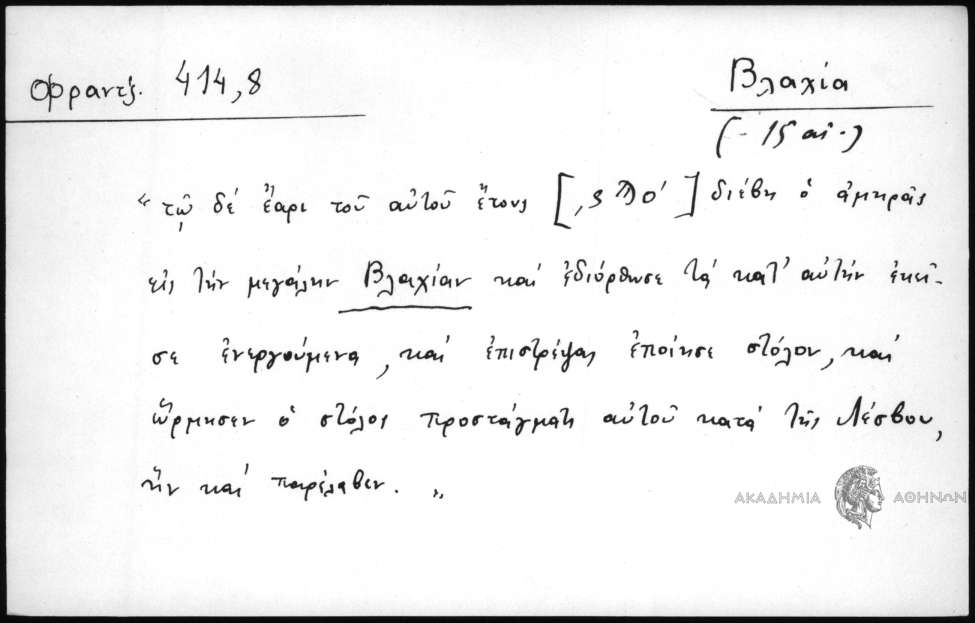 Φραντζ. 414,8
Βλαχία
(- 15 αἰ.)
“ τῷ δέ ἔαρι τοῦ αὐτοῦ ἔτους [͵ϛ Ϡ Ο′] διέβη ὁ ἀμηρᾶς
εἰς τήν μεγάλην Βλαχίαν καί ἐδιόρθωσε τά κατ’ αὐτήν ἐκεῖ-
σε ἐνεργούμενα, καί ἐπιστρέψας ἐποίησε στόλον, καί
ὥρμησεν ὁ στόλος προστάγματι αὐτοῦ κατά τῆς Λέσβου,
ἥν καί παρέλαβεν. „
ΑΚΑΔΗΜΙΑ ΑΘΗΝΩΝ